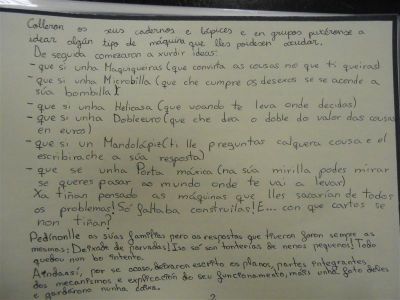 Colleron os seus cadernos e lápices e en grupos puxéronse a
idear algún tipo de máquina que lles poidesen axudar.
De seguida comezaron a xurdir ideas:
- que si unha Maquiqueiras (que convirta as cousas no que ti queiras)
- que si unha Microbilla (que che cumpre os desexos se se acende a
súa bombilla)
- que si unha Helicasa (que voando te leva onde decidas)
- que si unha Dobleeuro (que che dea o doble do valor das cousas
en euros)
- que si un Mandolápiz (ti lle preguntas calquera cousa e el
escribirache a súa resposta)
- que se unha Porta máxica (na súa mirilla podes mirar
se queres pasar ao mundo onde te vai a levar)
Xa tiñan pensado as máquinas que lles sacarían de todos
os problemas! Só faltaba construílas! E... con que cartos se
non tiñan?
Pedíronlle ás súas familias pero as respostas que tiveron foron sempre as
mesmas: Deixade de parvadas! Iso só son tonterías de nenos pequenos! Todo
quedou nun bo intento.
Aíndaasí, por se acaso, deixaron escrito os planos, partes integrantes
dos mecanismos e explicación do seu funcionamento, mais unha foto deles
e gardárono nunha caixa.